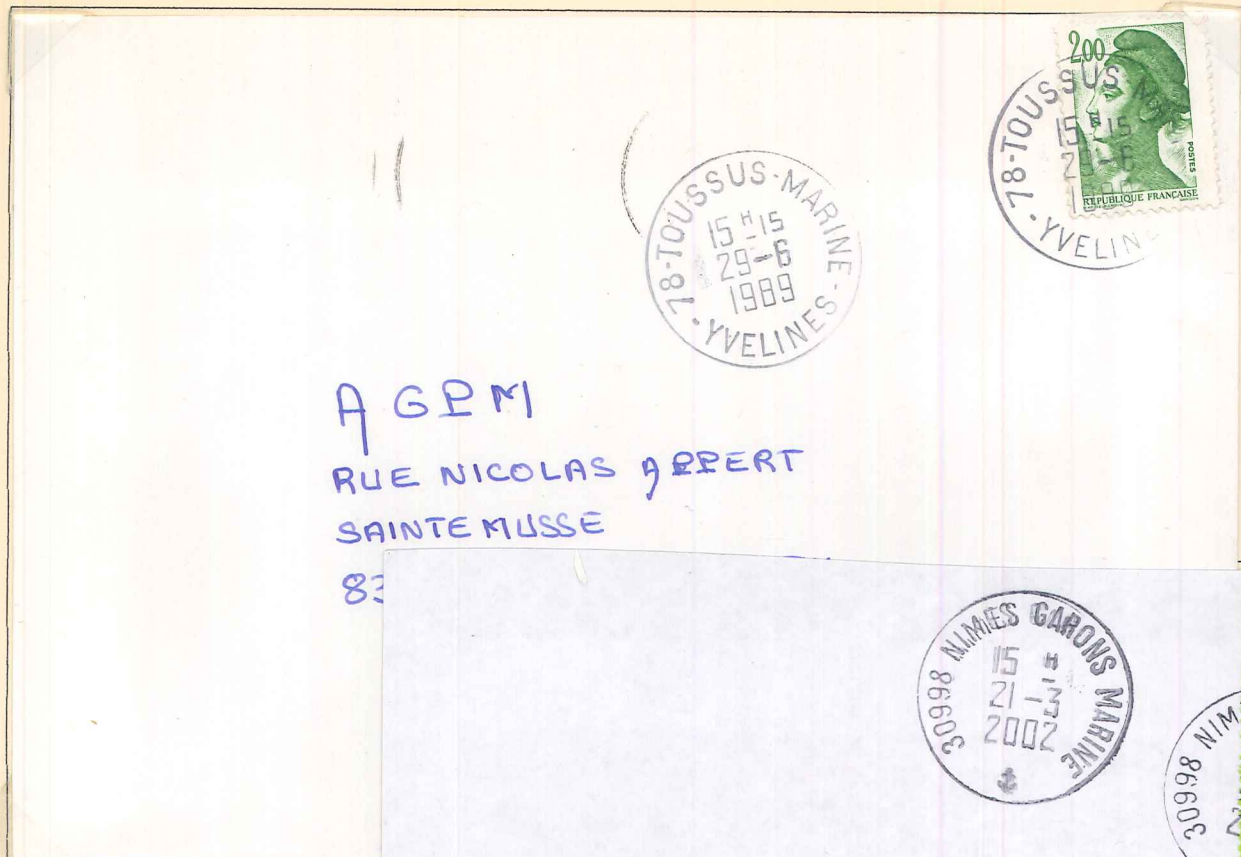 2,00
POSTES
RÉPUBLIQUE FRANÇAISE
78-TOUSSUS
15 H 15
29-6
YVELIN
78-TOUSSUS-MARINE
15 H 15
29-6
1989
YVELINES
A GPM
RUE NICOLAS APPERT
SAINTE MUSSE
83
30998 NIMES GARONS MARINE
15 H
21-3
2002
30998 NIM